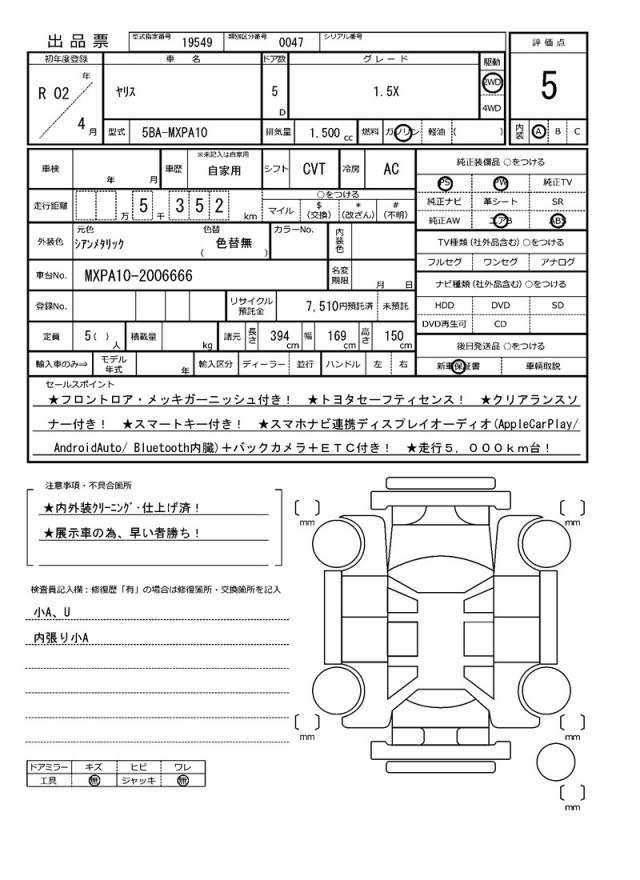 出品票 型式指定番号 19549 類別区分番号 0047 シリアル番号
評価点
5
初年度登録 車名 ドア数 グレード 駆動
R 02 年 4 月 ヤリス 5 D 1.5X 2WD 4WD
型式 5BA-MXPA10 排気量 1,500 cc 燃料 ガソリン 軽油 ( )
内装 A B C
車検 年 月 車歴 ※未記入は自家用 自家用 シフト CVT 冷房 AC
走行距離 万 5 千 3 5 2 km
○をつける
マイル $ (交換) * (改ざん) # (不明)
外装色 元色 シアンメタリック 色替 ( 色替無 ) カラーNo. 内装色
車台No. MXPA10-2006666 名変期限 月 日
登録No. リサイクル預託金 7,510円預託済 未預託
定員 5( ) 人 積載量 kg 諸元 長さ 394 cm 幅 169 cm 高さ 150 cm
輸入車のみ⇒ モデル年式 年 輸入区分 ディーラー 並行 ハンドル 左 右
純正装備品 ○をつける
PS PW 純正TV
純正ナビ 革シート SR
純正AW エアB ABS
TV種類 (社外品含む) ○をつける
フルセグ ワンセグ アナログ
ナビ種類 (社外品含む) ○をつける
HDD DVD SD
DVD再生可 CD
後日発送品 ○をつける
新車保証書 車輌取説
セールスポイント
★フロントロア・メッキガーニッシュ付き！ ★トヨタセーフティセンス！ ★クリアランスソ
ナー付き！ ★スマートキー付き！ ★スマホナビ連携ディスプレイオーディオ(AppleCarPlay/
AndroidAuto/ Bluetooth内臓)＋バックカメラ＋ＥＴＣ付き！ ★走行５，０００ｋｍ台！
注意事項・不具合箇所
★内外装クリーニング・仕上げ済！
★展示車の為、早い者勝ち！
検査員記入欄：修復歴「有」の場合は修復箇所・交換箇所を記入
小A、U
内張り小A
ドアミラー キズ ヒビ ワレ
工具 無 ジャッキ 無
mm
mm
mm
mm
mm